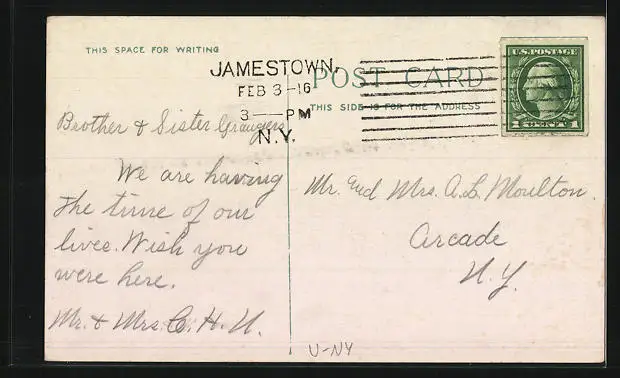 THIS SPACE FOR WRITING
JAMESTOWN,
FEB 3-16
3 — PM
N.Y.
POST CARD
THIS SIDE IS FOR THE ADDRESS
U.S. POSTAGE
1 CENT 1
Brother & Sister Grangers
We are having
the time of our
lives. Wish you
were here.
Mr. & Mrs. C. H. U.
Mr. and Mrs. A. L. Moulton.
Arcade
N.Y.
U-NY